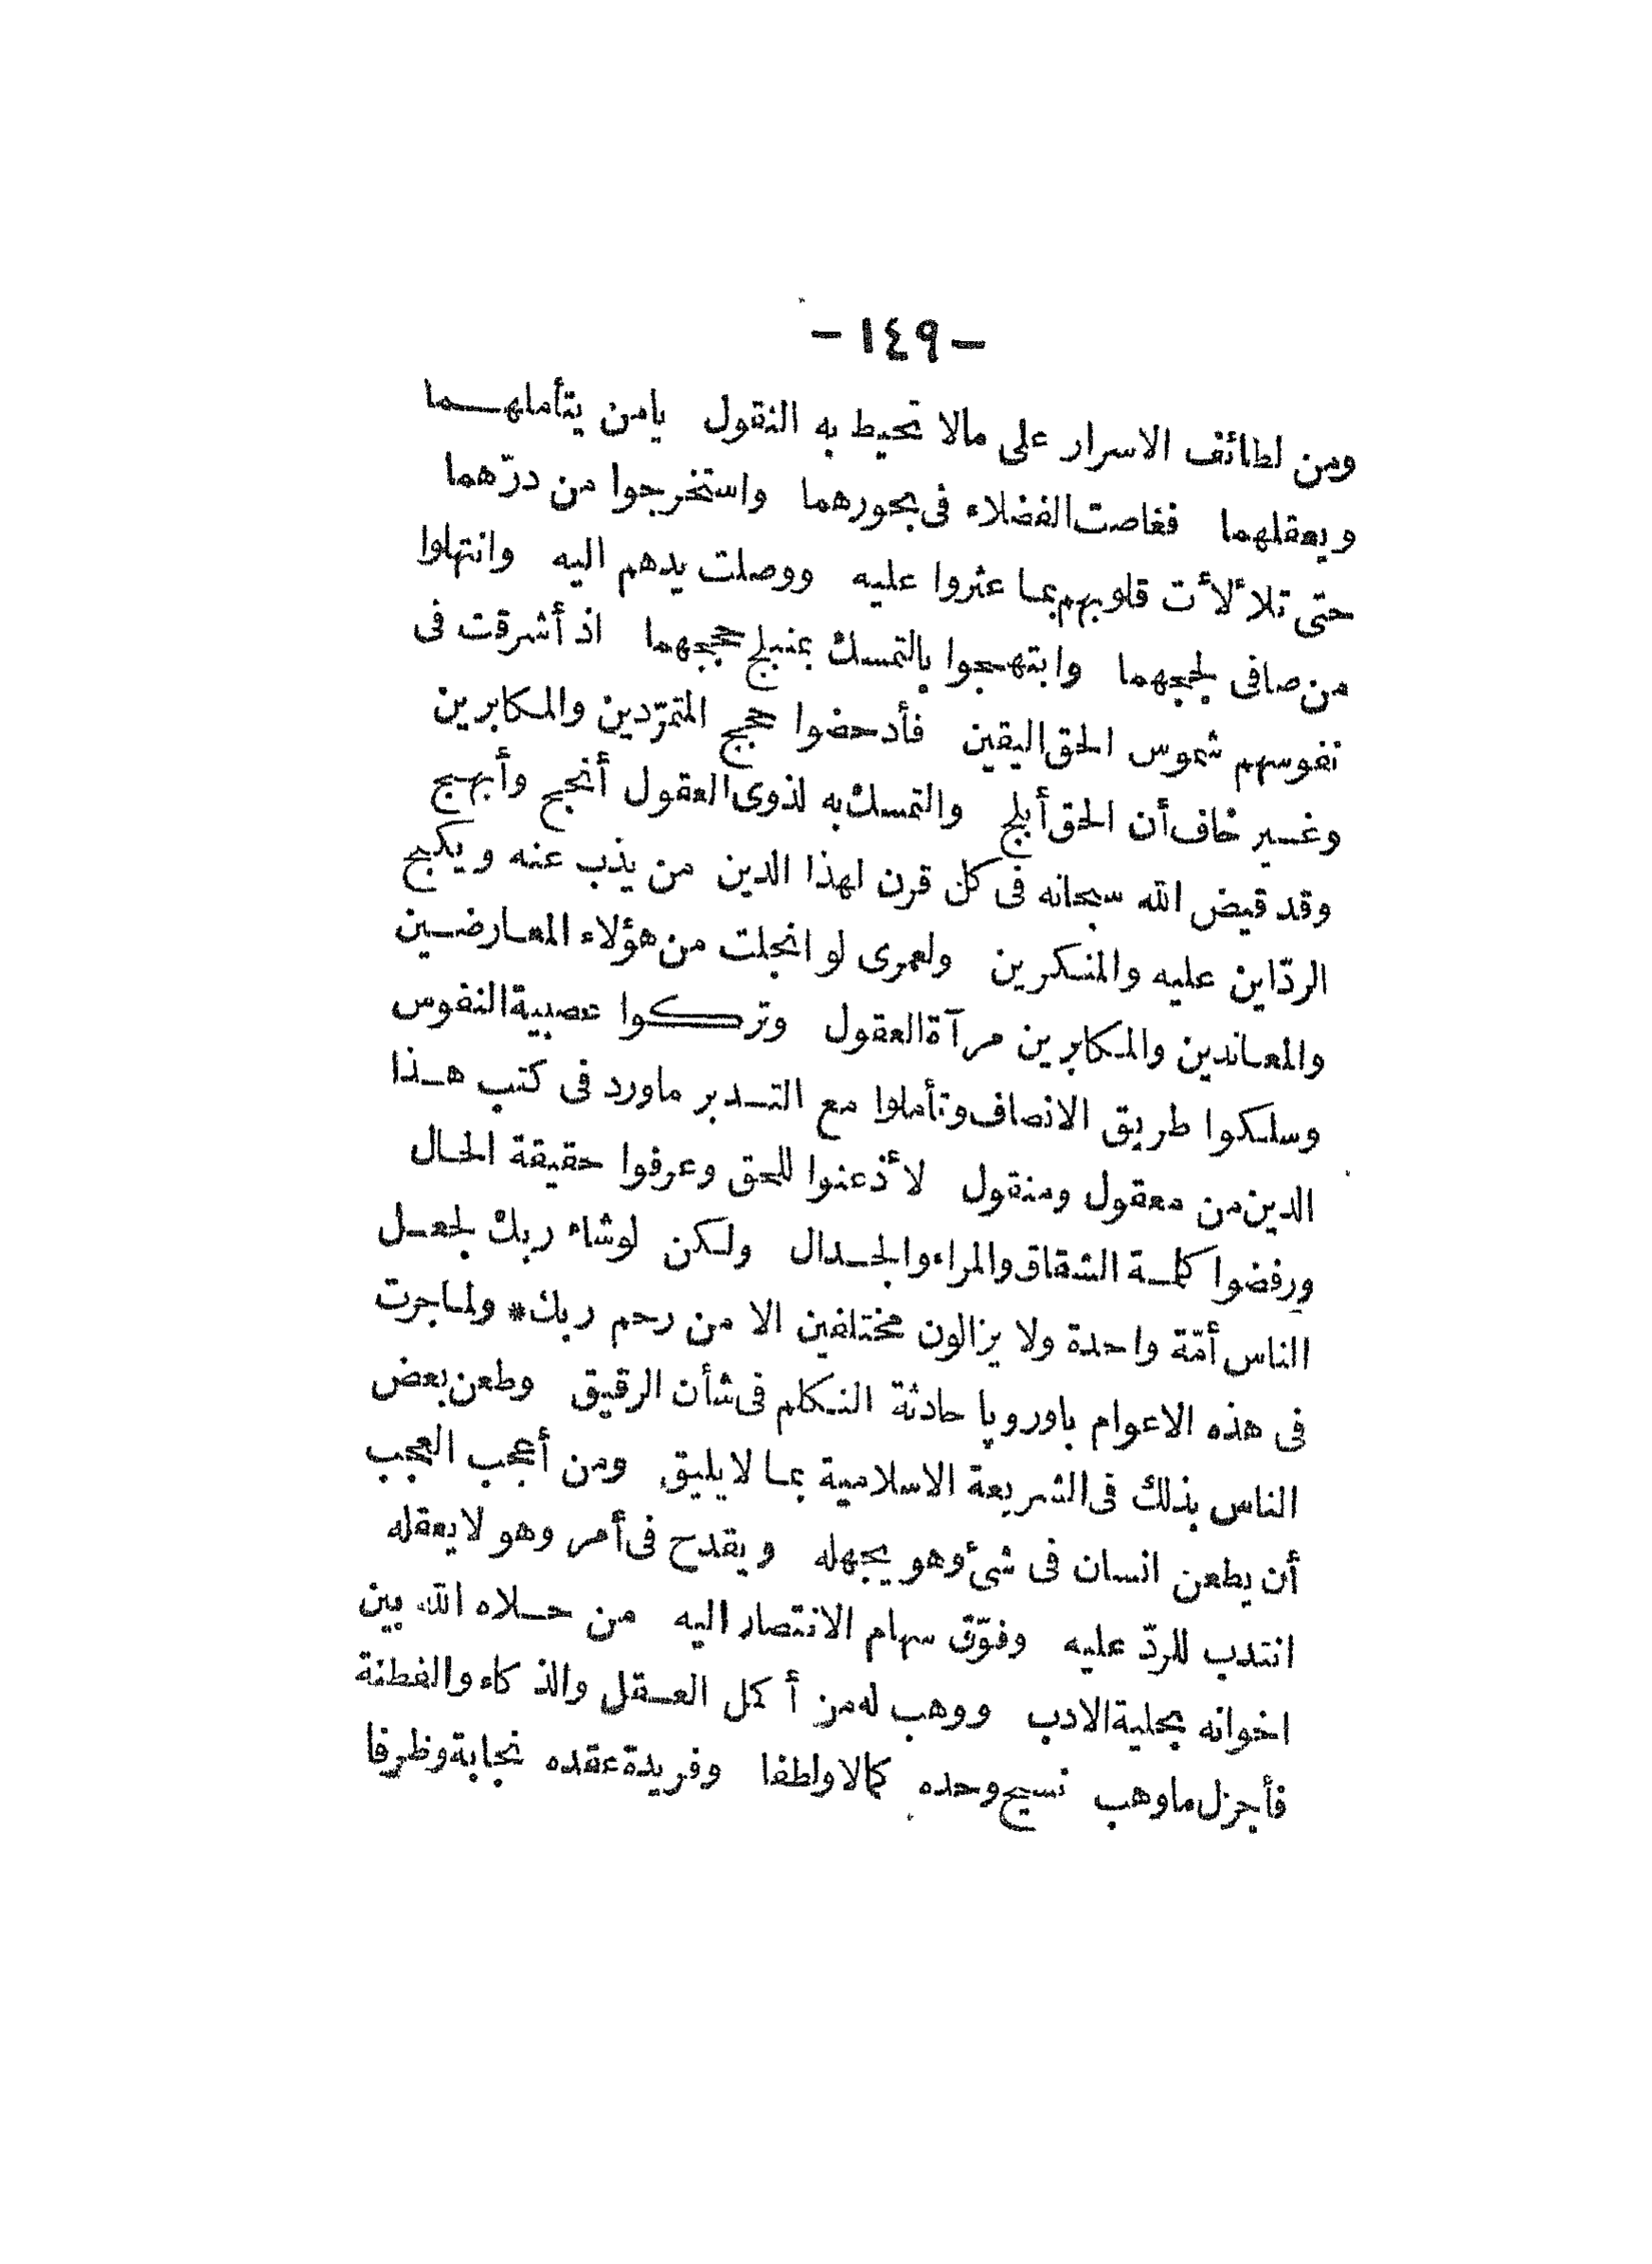 - ١٤٩ -
ومن لطائف الاسرار على مالا تحيط به النقول يامن يتأملهما
ويعقلهما فغاصت الفضلاء فى بحورهما واستخرجوا من درّهما
حتى تلألأت قلوبهم بما عثروا عليه ووصلت يدهم اليه وانتهلوا
من صافى لججهما وابتهجوا بالتمسك بمنبلج حججهما اذ أشرقت فى
نفوسهم شموس الحق اليقين فأدحضوا حجج المتمرّدين والمكابرين
وغير خاف أن الحق أبلج والتمسك به لذوى العقول أنجح وأبهج
وقد قيض الله سبحانه فى كل قرن لهذا الدين من يذب عنه ويكبح
الردّاين عليه والمنكرين ولعمرى لو انجلت من هؤلاء المعارضين
والمعاندين والمكابرين مرآة العقول وتركوا عصبية النفوس
وسلكوا طريق الانصاف وتأملوا مع التدبر ماورد فى كتب هذا
الدين من معقول ومنقول لأذعنوا للحق وعرفوا حقيقة الحال
ورفضوا كلمة الشقاق والمراء والجدال ولكن لوشاء ربك لجعل
الناس أمّة واحدة ولا يزالون مختلفين الا من رحم ربك* ولماجرت
فى هذه الاعوام باوروپا حادثة التكلم فى شأن الرقيق وطعن بعض
الناس بذلك فى الشريعة الاسلامية بما لايليق ومن أعجب العجب
أن يطعن انسان فى شئ وهو يجهله ويقدح فى أمر وهو لايعقله
انتدب للردّ عليه وفوّق سهام الانتصار اليه من حلاه الله بين
اخوانه بحلية الادب ووهب له من أكمل العقل والذكاء والفطنة
فأجزل ماوهب نسيج وحده كمالا ولطفا وفريدة عقده نجابة وظرفا